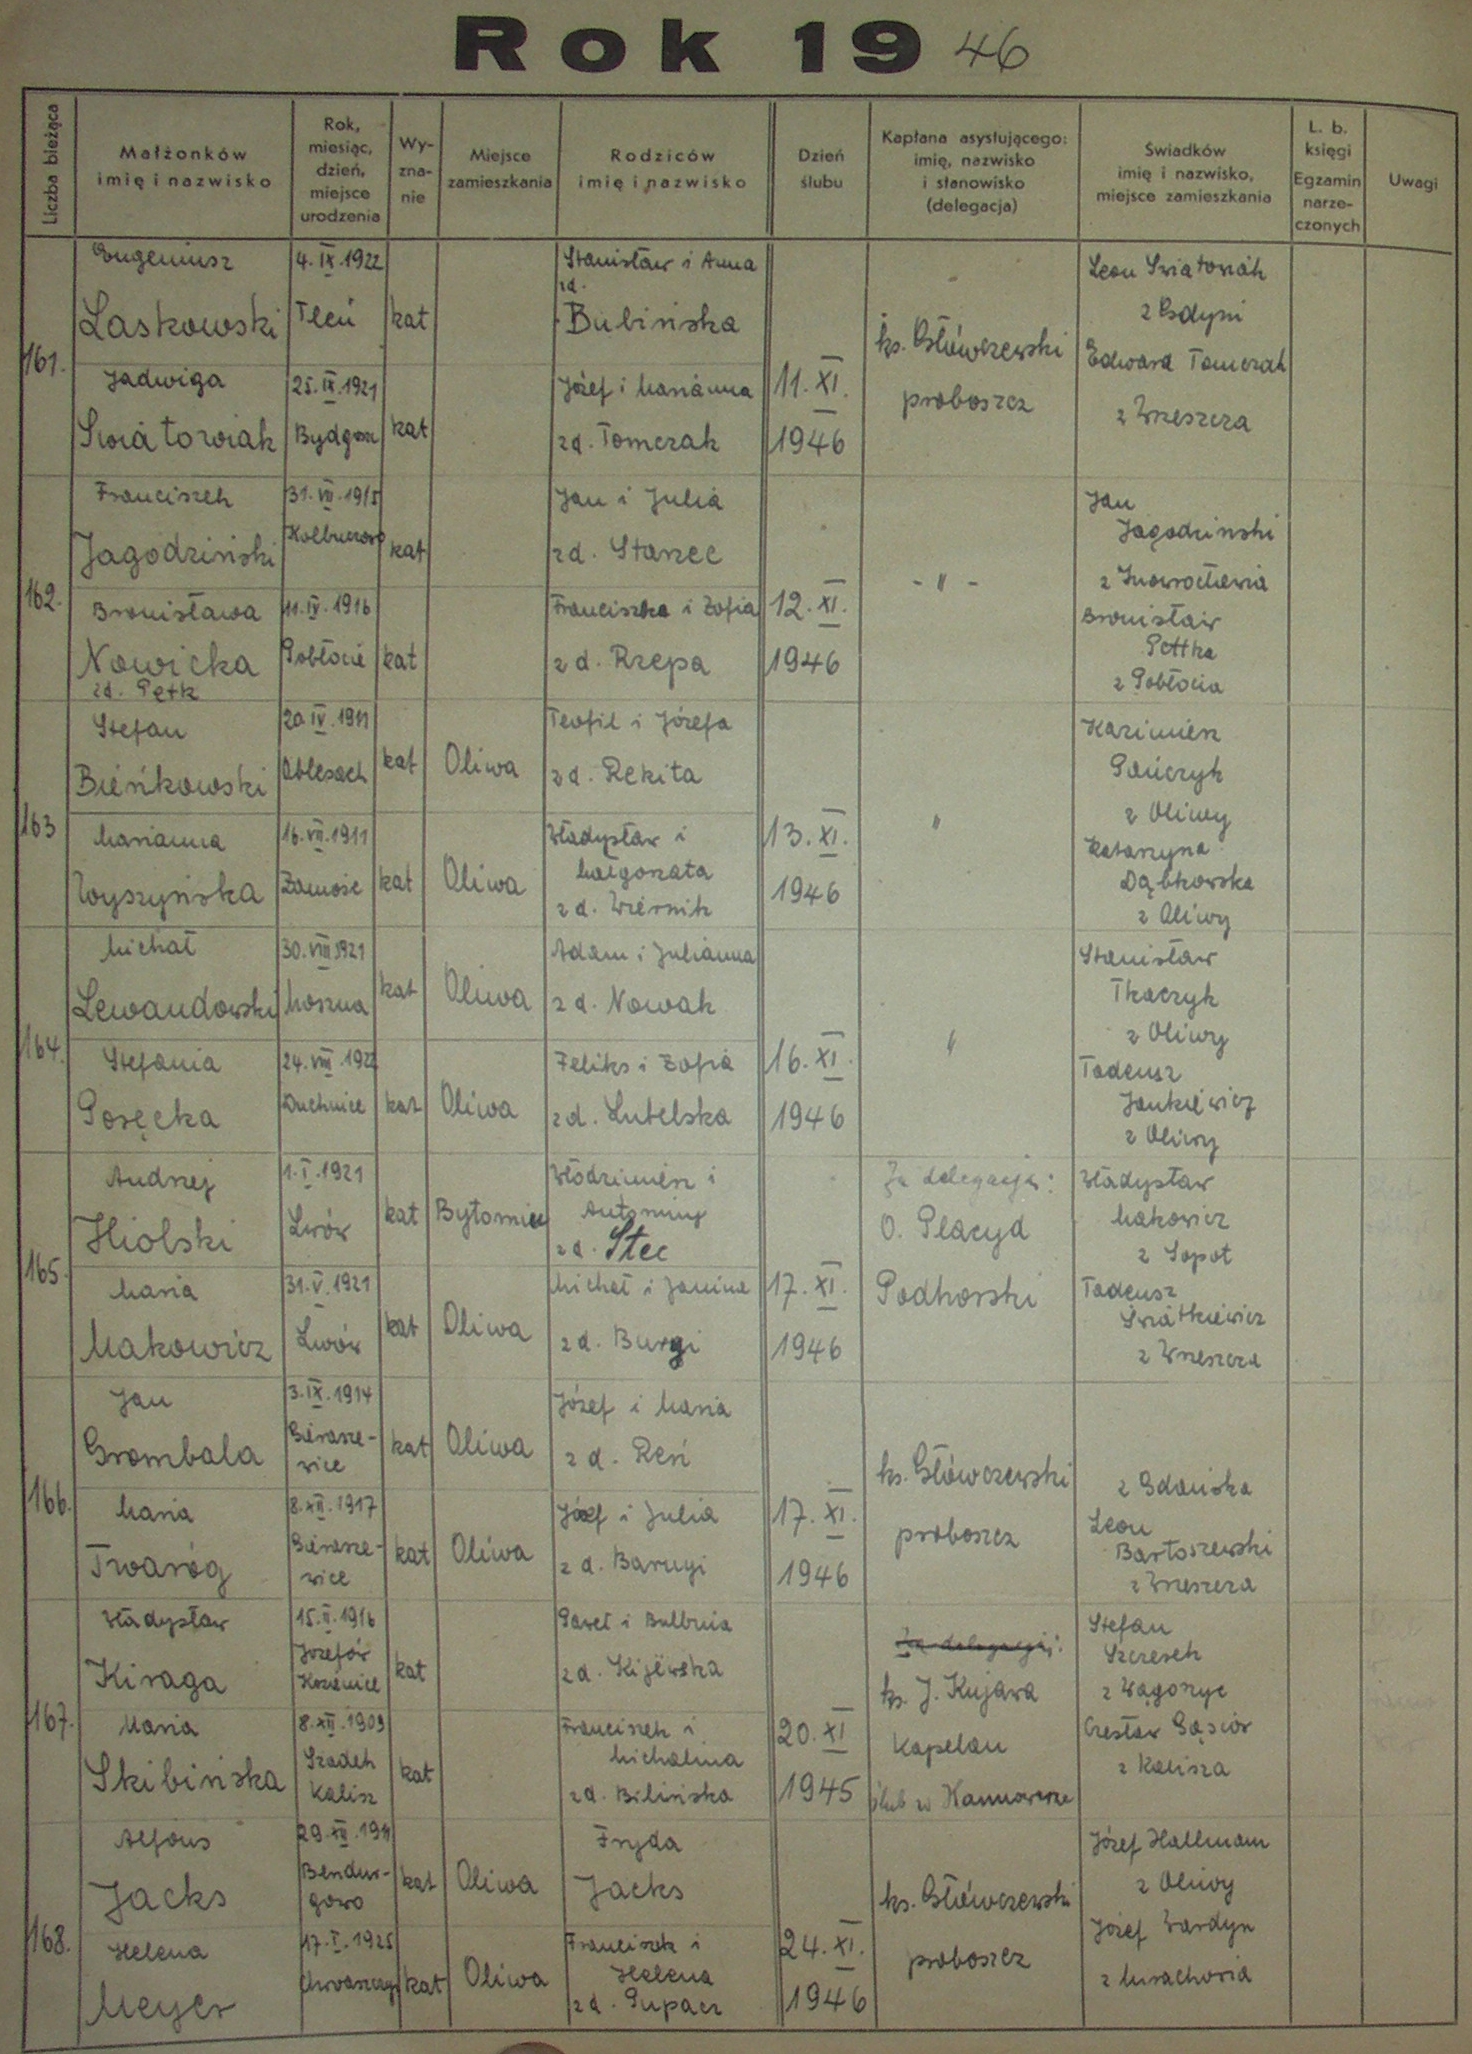 Rok 1946
Liczba bieżąca
Małżonków
imię i nazwisko
Rok,
miesiąc,
dzień,
miejsce
urodzenia
Wy-
zna-
nie
Miejsce
zamieszkania
Rodziców
imię i nazwisko
Dzień
ślubu
Kapłana asystującego:
imię, nazwisko
i stanowisko
(delegacja)
Świadków
imię i nazwisko,
miejsce zamieszkania
L. b.
księgi
Egzamin
narze-
czonych
Uwagi
161.
Eugeniusz
Laskowski
4.IX.1922
Tleń
kat
Stanisław i Anna
zd.
Bubińska
Jadwiga
Swiatowiak
25.IX.1921
Bydgosz
kat
Józef i Marianna
zd. Tomczak
11.XI.
1946
ks. Główczewski
proboszcz
Leon Swiatowiak
z Gdyni
Edward Tomczak
z Wrzeszcza
162.
Franciszek
Jagodziński
31.VII.1915
kat
Jan i Julia
zd. Starzec
Bronisława
Nowicka
zd. Petk
11.IV.1916
Pobłocie
kat
Franciszka i Zofia
zd. Rzepa
12.XI.
1946
- " -
Jan
Jagodzinski
z Inowrocławia
Bronisław
Pettke
z Pobłocia
163
Stefan
Bieńkowski
20.IV.1911
kat
Oliwa
Teofil i Józefa
zd. Rekita
Marianna
Wyszyńska
16.VII.1911
Zamość
kat
Oliwa
Władysław i
Małgorzata
zd. Wiernik
13.XI.
1946
"
Kazimierz
Pończyk
z Oliwy
Katarzyna
Dąbkowska
z Oliwy
164.
Michał
Lewandowski
30.VIII.1921
Moszna
kat
Oliwa
Adam i Julianna
zd. Nowak
Stefania
Posęcka
24.VIII.1922
Duchnice
kat
Oliwa
Feliks i Zofia
zd. Lutelska
16.XI.
1946
"
Stanisław
Tkaczyk
z Oliwy
Tadeusz
Jankiewicz
z Oliwy
165.
Andrzej
Hiolski
1.I.1921
Lwów
kat
Bytomiu
Włodzimierz i
Antoniny
zd. Stec
Maria
Makowicz
31.V.1921
Lwów
kat
Oliwa
Michał i Janina
zd. Burgi
17.XI.
1946
Za delegacją:
O. Placyd
Podhorski
Władysław
Makowicz
z Sopot
Tadeusz
Światkiewicz
z Wrzeszcza
166.
Jan
Grombala
3.IX.1914
Sierasze-
wice
kat
Oliwa
Józef i Maria
zd. Reń
Maria
Twaróg
8.XII.1917
Sierasze-
wice
kat
Oliwa
Józef i Julia
zd. Barugi
17.XI.
1946
ks. Główczewski
proboszcz
z Gdańska
Leon
Bartoszewski
z Wrzeszcza
167.
Władysław
Kiraga
15.II.1916
Józefów
Kozienice
kat
Paweł i Balbina
zd. Kijewska
Maria
Skibińska
8.XII.1909
Szadek
Kalisz
kat
Franciszek i
Michalina
zd. Bilińska
20.XI
1945
Za delegacją:
ks. J. Kujawa
kapelan
ślub w Hannowerze
Stefan
Szczesek
Czesław Gąsiór
z Kalisza
168.
Alfons
Jacks
29.XII.1911
kat
Oliwa
Fryda
Jacks
Helena
Meyer
17.I.1925
kat
Oliwa
Franciszek i
Helena
zd. Pupacz
24.XI.
1946
ks. Główczewski
proboszcz
Józef Hallmann
z Oliwy
Józef Wardyn